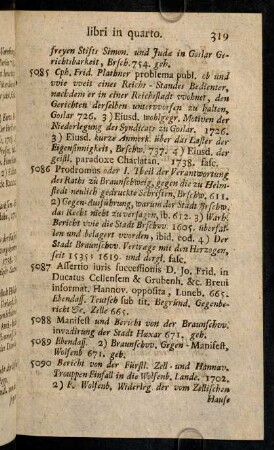 libri in quarto. 319
freyen Stifts Simon. und Juda in Goslar Ge-
richtsbarkeit, Brsch. 754. geb.
5085 Cph. Frid. Plathner problema publ. ob und
wie weit eines Reichs-Standes Bedienter,
nachdem er in einer Reichsstadt wohnet, den
Gerichten derselben unterworfen zu halten,
Goslar 726. 3) Eiusd. wohlgegr. Motiven der
Niederlegung des Syndicatz zu Goslar. 1726.
3) Eiusd. kurze Anmerk. über das Laster der
Eigensinnigkeit, Brschw. 737. 4) Eiusd. der
geistl. paradoxe Charlatan. 1738. fasc.
5086 Prodromus oder I. Theil der Verantwortung
des Raths zu Braunschweig, gegen die zu Helm-
stedt neulich gedruckte Schriften, Brschw. 611.
2) Gegen-Ausführung, warum der Stadt Brschw.
das Recht nicht zu versagen, ib. 612. 3) Warh.
Bericht wie die Stadt Brschw. 1605. überfal-
len und belagert worden, ibid. eod. 4) Der
Stadt Braunschw. Vertræge mit den Herzogen,
seit 1535: 1619. und dergl. fasc.
5087 Assertio iuris successionis D. Jo. Frid. in
Ducatus Cellensem & Grubenh. &c. Brevi
informat. Hannov. opposita, Luneb. 665.
Ebendass. Teutsch sub tit. Begründ. Gegenbe-
richt &c. Zelle 665.
5088 Manifest und Bericht von der Braunschw.
invadirung der Stadt Hoxar 671. geb.
5089 Ebendass. 2) Braunschw. Gegen-Manifest,
Wolfenb 671. geb.
5090 Bericht von der Fürstl. Zell- und Hannov.
Trouppen Einfall in die Wolfenb. Lande. 1702.
2) b. Wolfenb. Widerleg. der vom Zellischen
Hause